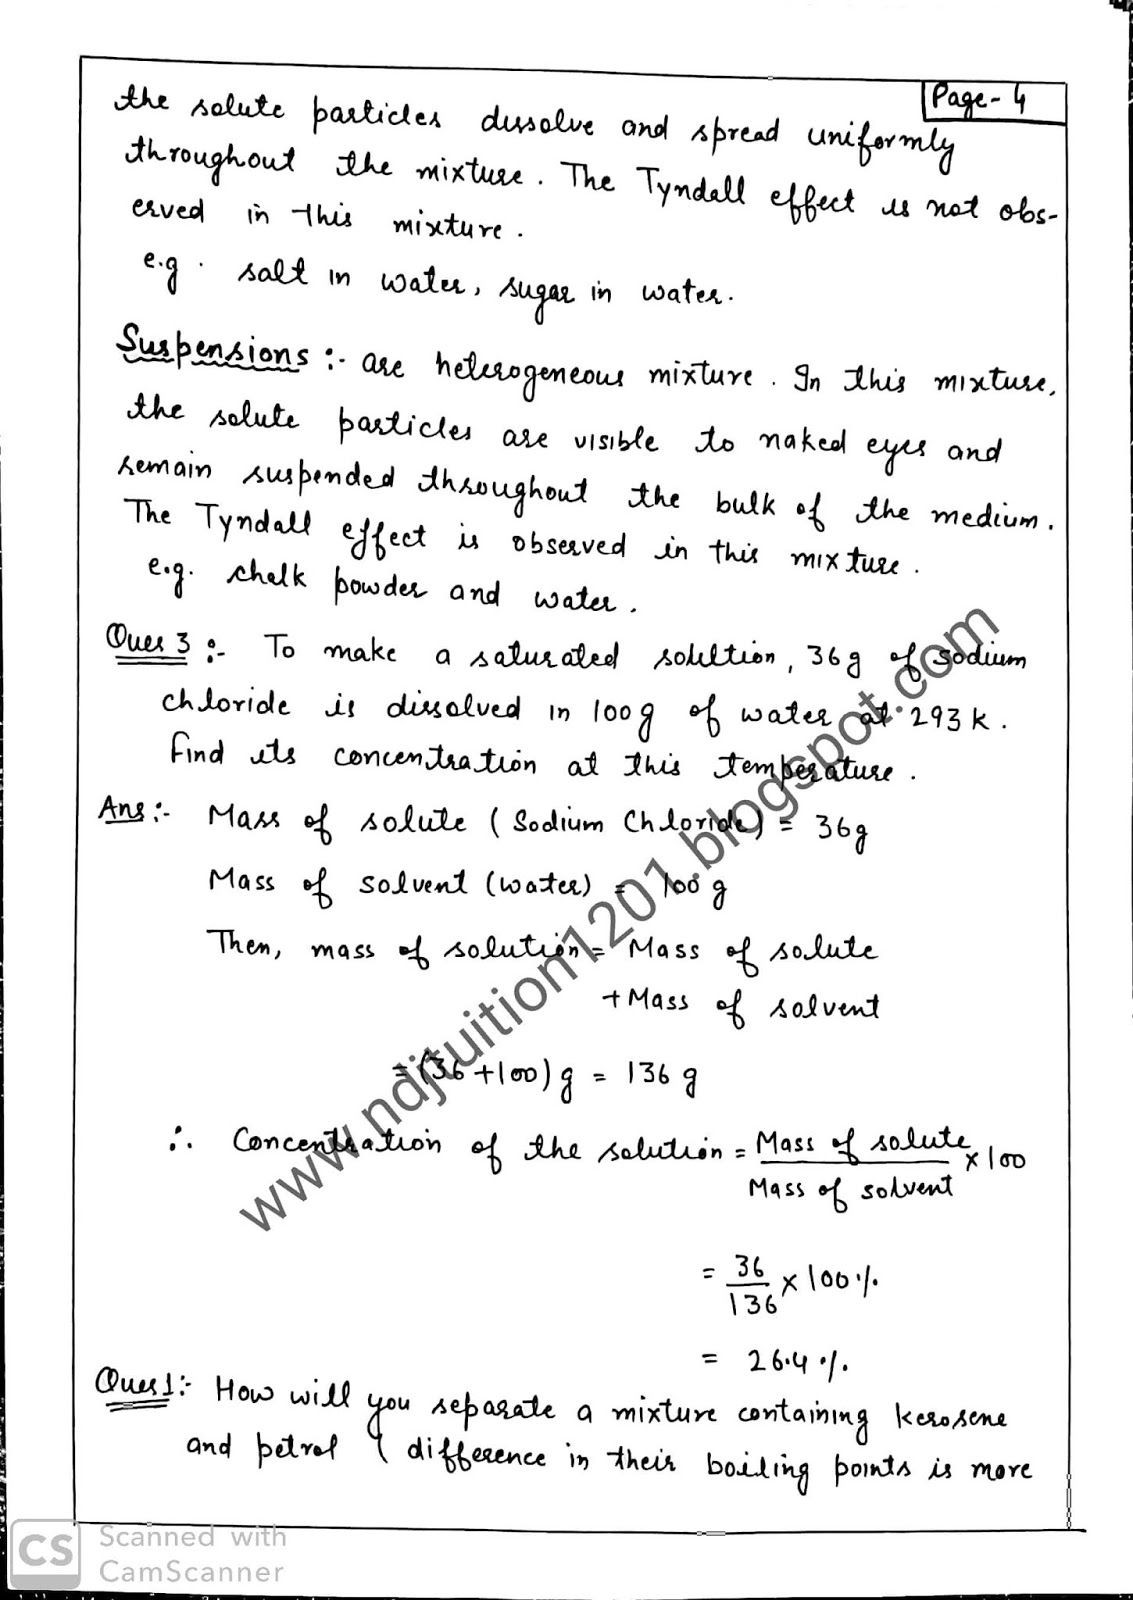 Page-4
the solute particles dissolve and spread uniformly
throughout the mixture. The Tyndall effect is not obs-
erved in this mixture.
e.g. salt in water, sugar in water.
Suspensions :- are heterogeneous mixture. In this mixture,
the solute particles are visible to naked eyes and
remain suspended throughout the bulk of the medium.
The Tyndall effect is observed in this mixture.
e.g. chalk powder and water.
Ques 3 :- To make a saturated solution, 36g of sodium
chloride is dissolved in 100g of water at 293 K.
Find its concentration at this temperature.
Ans :- Mass of solute (Sodium Chloride) = 36g
Mass of solvent (water) = 100 g
Then, mass of solution = Mass of solute
+ Mass of solvent
= (36+100) g = 136 g
∴ Concentration of the solution = Mass of solute × 100
Mass of solvent
= 36 × 100 %
136
= 26.4 %.
Ques 1:- How will you separate a mixture containing kerosene
and petrol ( difference in their boiling points is more
www.ndjtuition1201.blogspot.com
CS Scanned with
CamScanner